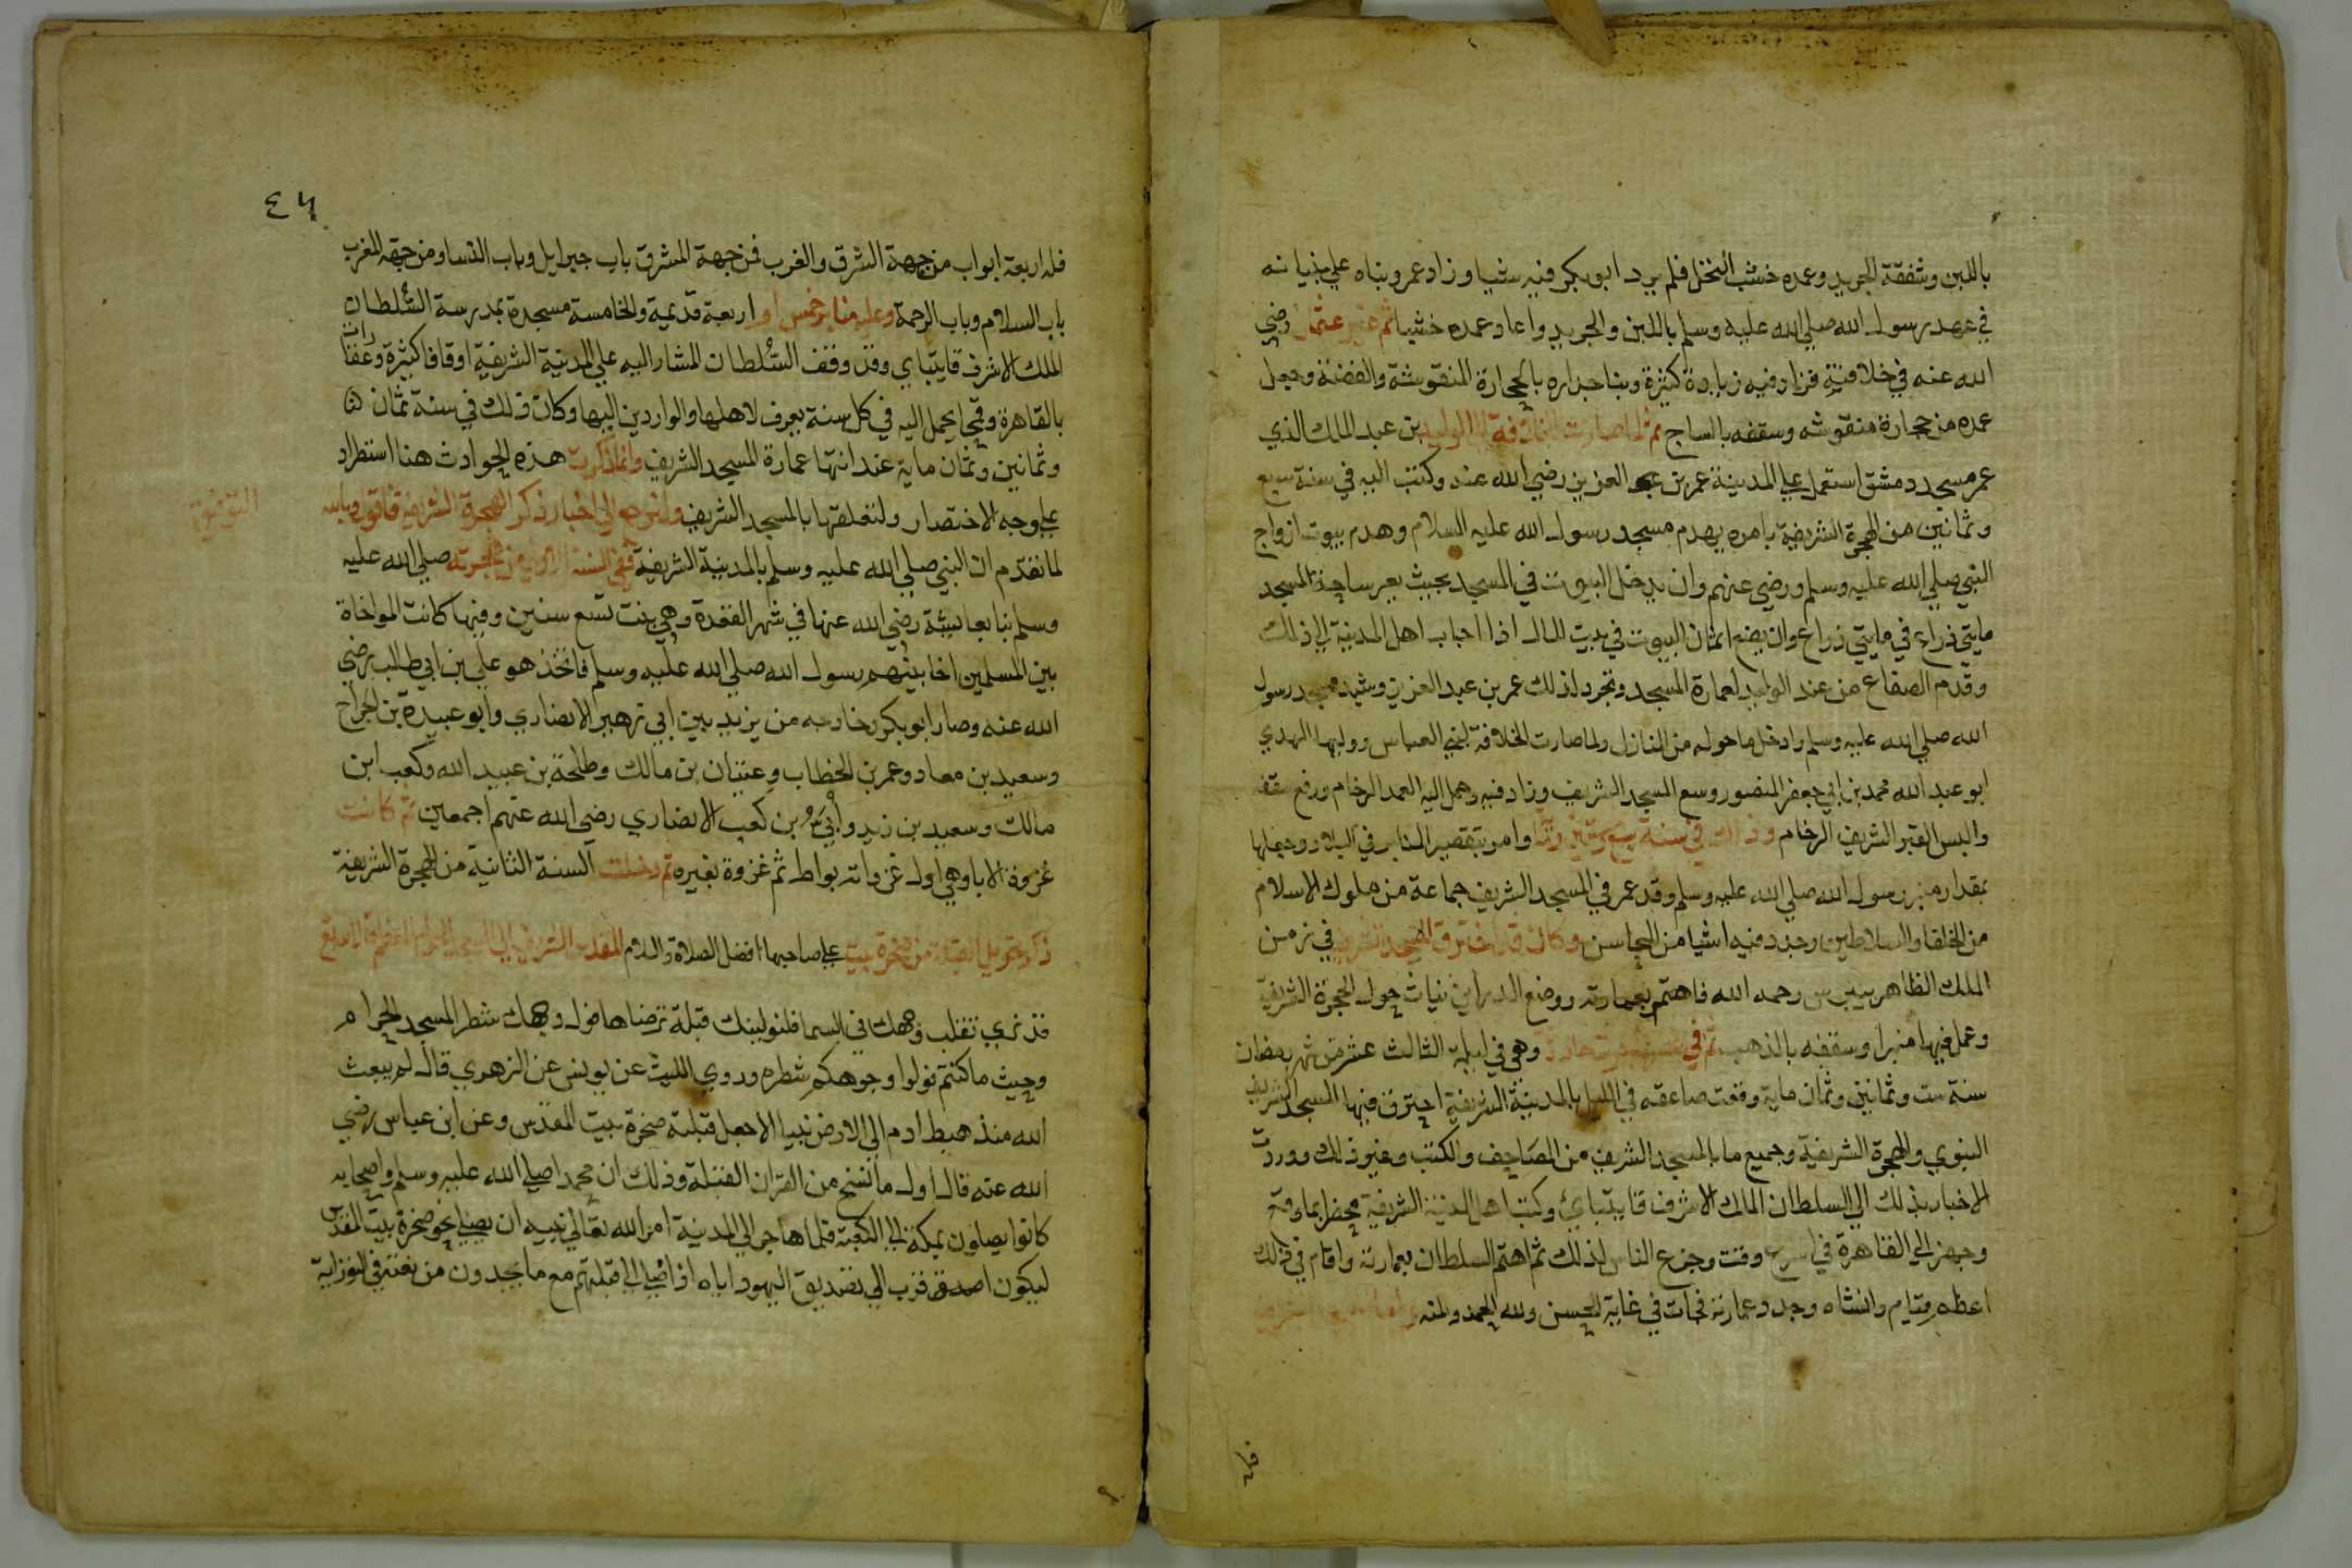 باللبن وشقفة الجريد وعمده خشب النخل فلم يرد ابو بكر فيه شيا وزاد عمر وبناه علي بنيانه
في عهد رسول الله صلي الله عليه وسلم باللبن والجريد واعاد عمده خشبا ثم غيره عثمان رضي
الله عنه في خلافته فزاد فيه زيادة كثيرة وبنا جداره بالحجارة المنقوشة والفضة وجعل
عمده من حجارة منقوشه وسقفه بالساج ثم لما صارت الخلافة الي الوليد بن عبد الملك الذي
عمر مسجد دمشق استعمل علي المدينة عمر بن عبد العزيز رضي الله عنه وكتب اليه في سنة سبع
وثمانين من الهجرة الشريفة يامره بهدم مسجد رسول الله عليه السلام وهدم بيوت ازواج
النبي صلي الله عليه وسلم ورضي عنهم وان يدخل البيوت في المسجد بحيث يعير ساحة المسجد
مايتي ذراع في مايتي ذراع وان يضع اثمان البيوت في بيت المال اذا اجاب اهل المدينة الي ذلك
وقدم الصناع من عند الوليد لعمارة المسجد وتجرد لذلك عمر بن عبد العزيز وشيد مسجد رسول
الله صلي الله عليه وسلم وادخل ما حوله من المنازل ولما صارت الخلافة لبني العباس ووليها المهدي
ابو عبد الله محمد بن ابي جعفر المنصور وسع المسجد الشريف وزاد فيه وحمل اليه العمد الرخام ورفع سقفه
والبس القبر الشريف الرخام وذلك في سنة سبع وستين وماية وامر بتقصير المنابر في البلاد وجعلها
بمقدار منبر رسول الله صلي الله عليه وسلم وقد عمر في المسجد الشريف جماعة من ملوك الاسلام
من الخلفا والسلاطين وجدد فيه اشيا من المحاسن وكان قد احترق المسجد الشريف في زمن
الملك الظاهر بيبرس رحمه الله فاهتم بعمارته ووضع الدرابزينات حول الحجرة الشريفة
وعمل فيها منبرا وسقفه بالذهب ثم في وهي في ليلة الثالث عشر من شهر رمضان
سنة ست وثمانين وثمان ماية وقعت صاعقه في الليل بالمدينة الشريفة احترق فيها المسجد الشريف
النبوي والحجرة الشريفة وجميع ما بالمسجد الشريف من المصاحف والكتب وغير ذلك ووردت
الاخبار بذلك الي السلطان الملك الاشرف قايتباي وكتب اهل المدينة الشريفة محضرا بما وقع
وجهز الي القاهرة في اسرع وقت وجزع الناس لذلك ثم اهتم السلطان بعمارته واقام في ذلك
اعظم قيام وانشاه وجدد عمارته فجات في غاية الحسن ولله الحمد والمنه
فله
٤٦
فله اربعة ابواب من جهة الشرق والغرب فمن جهة المشرق باب جبرايل وباب النسا ومن جهة المغرب
باب السلام وباب الرحمة وعليه منابر خمس اربعة قديمة والخامسة مسجدة بمدرسة السلطان
الملك الاشرف قايتباي وقد وقف السلطان المشار اليه علي المدينة الشريفة اوقافا كثيرة وعقارات
بالقاهرة وقمحا يحمل اليه في كل سنة يعرف لاهلها والواردين اليها وكان ذلك في سنة ثمان
وثمانين وثمان ماية عند انتها عمارة المسجد الشريف وانما ذكرت هذه الحوادث هنا استطراد
علي وجه الاختصار ولتعلقها بالمسجد الشريف ولنرجع الي اخبار ذكر الهجرة الشريفة فاقول وبالله
التوفيق
لما تقدم ان النبي صلي الله عليه وسلم بالمدينة الشريفة ففي السنة الاولي من هجرته صلي الله عليه
وسلم بنا بعايشة رضي الله عنها في شهر القعدة وهي بنت تسع سنين وفيها كانت المواخاة
بين المسلمين اخا بينهم رسول الله صلي الله عليه وسلم فاتخذ هو علي بن ابي طالب رضي
الله عنه وصار ابو بكر وخارجه من يزيد بين ابي زهير الانصاري وابو عبيدة بن الجراح
وسعيد بن معاد وعمر بن الخطاب وعتبان بن مالك وطلحة بن عبيد الله وكعب ابن
مالك وسعيد بن زيد وابي بن كعب الانصاري رضي الله عنهم اجمعين ثم كانت
غزوة الابا وهي اول غزواته بواط ثم غزوة بغيره ثم دخلت السنة الثانية من الهجرة الشريفة
ذكر تحويل القبلة من صخرة بيت علي صاحبها افضل الصلاة والسلام المقدس الشريف الي المسجد الحرام
قد نري تقلب وجهك في السما فلنولينك قبلة ترضاها فول وجهك شطر المسجد الحرام
وحيث ما كنتم فولوا وجوهكم شطره وروي الليث عن يونس عن الزهري قال لم يبعث
الله منذ هبط ادم الي الارض نبيا الا جعل قبلته صخرة بيت المقدس وعن ابن عباس رضي
الله عنه قال اول ما نسخ من القران القبلة وذلك ان محمدا صلي الله عليه وسلم واصحابه
كانوا يصلون بمكة الي الكعبة فلما هاجر الي المدينة امر الله تعالي نبيه ان يصلي نحو صخرة بيت المقدس
ليكون اصدق قرب الي تصديق اليهود اياه اذا صلي الي قبلتهم مع ما يجدون من نعته في التوراية